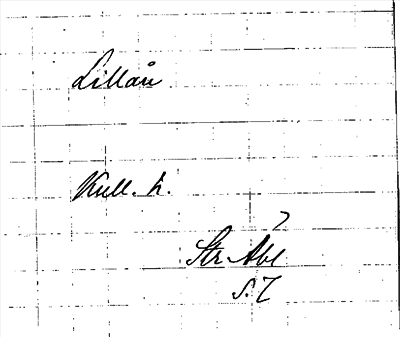 Lillån
Kull. h.
7
Str Abl
S. 7